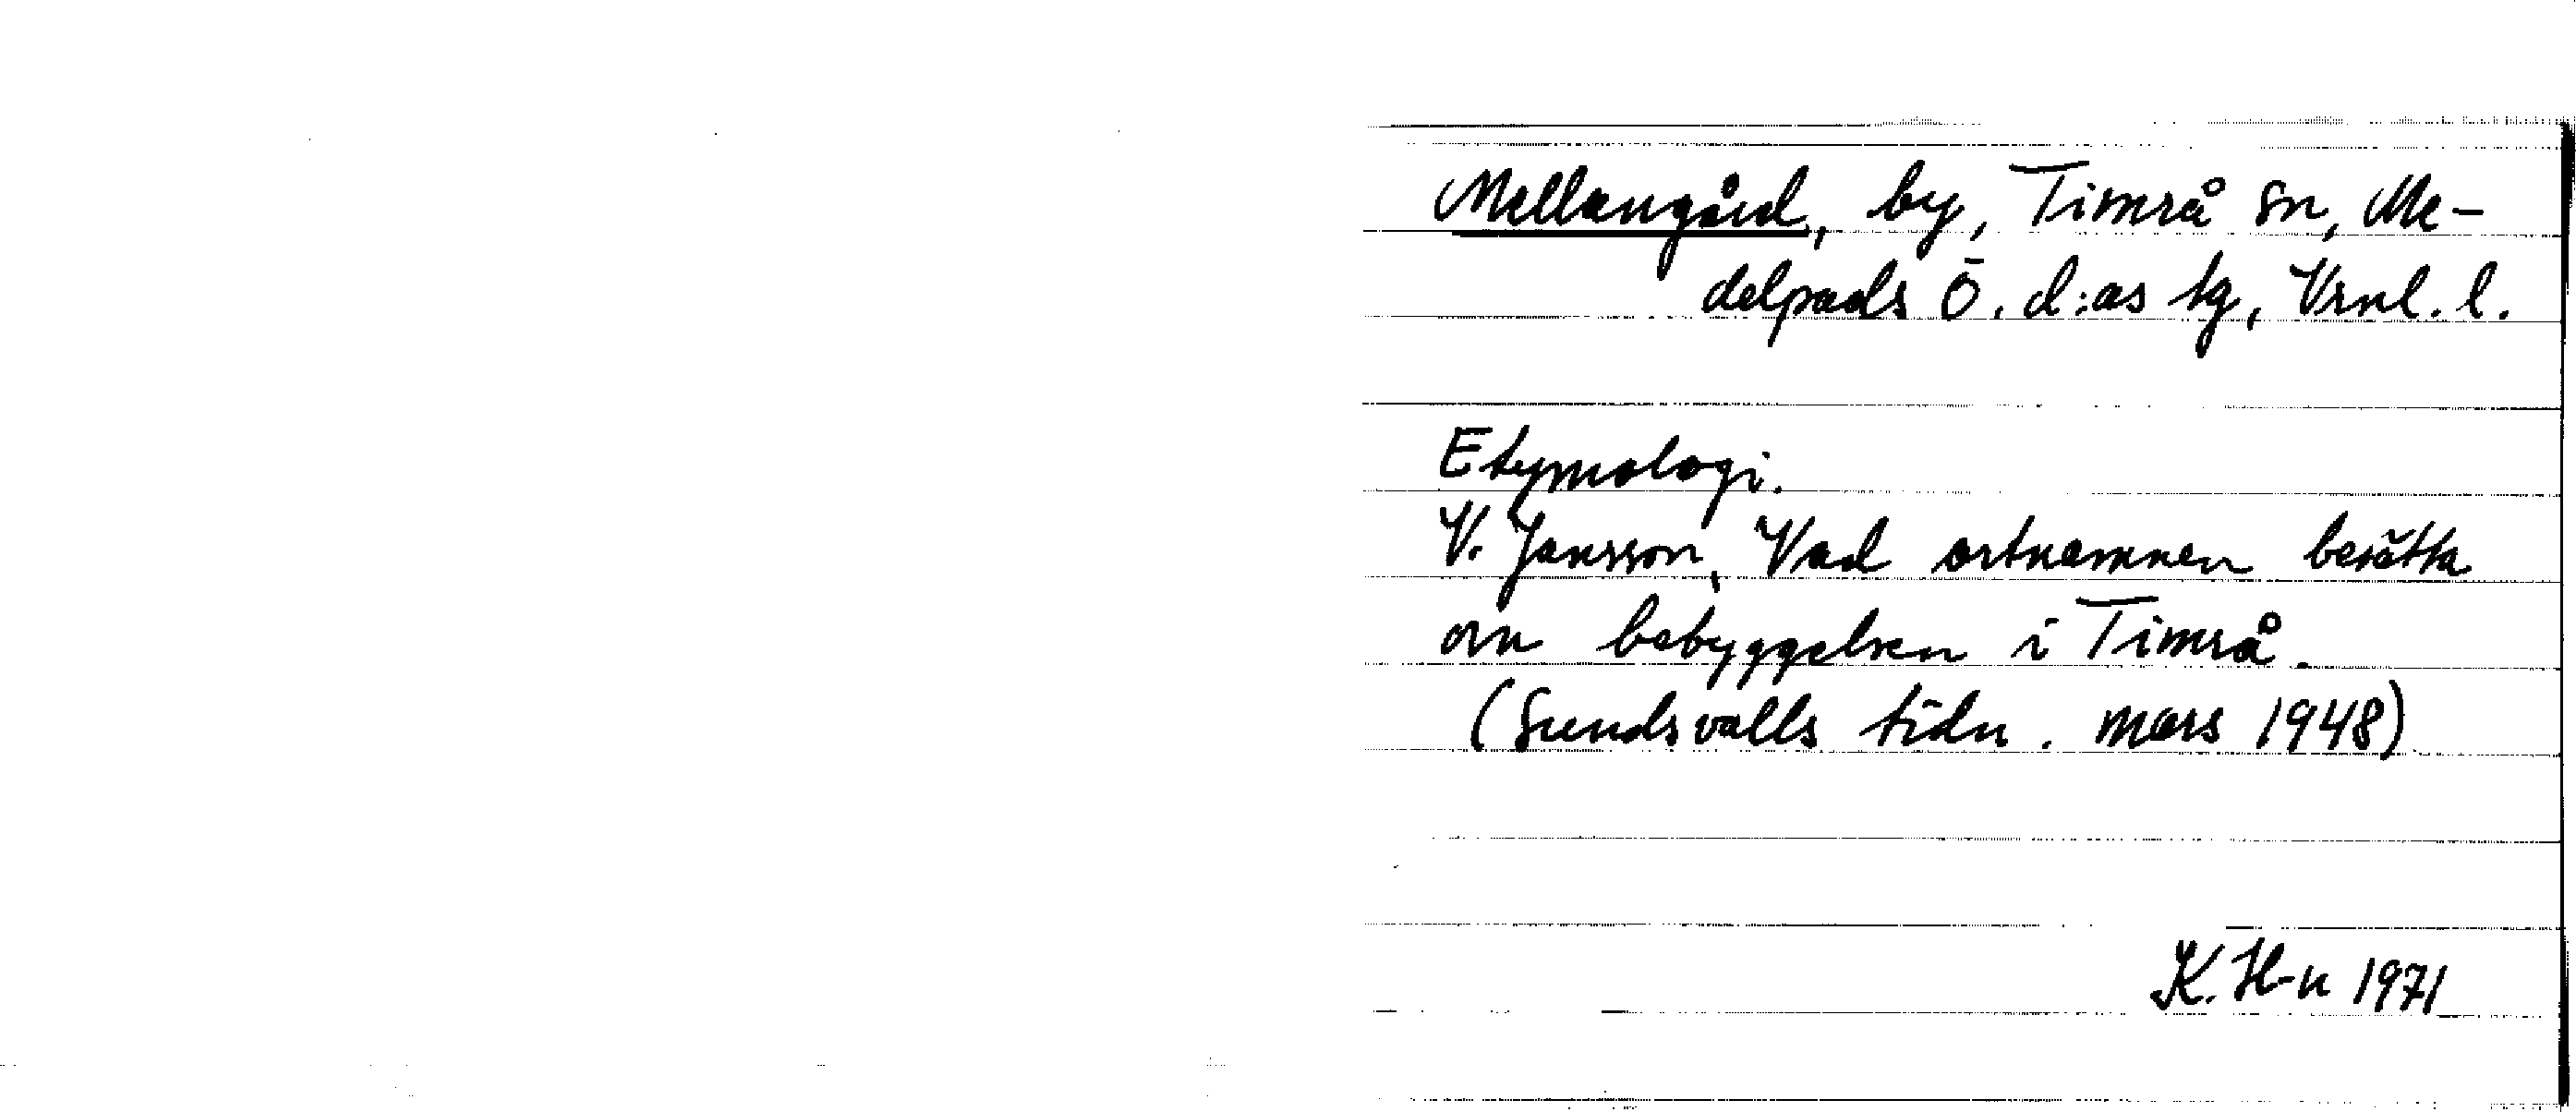 Mellangård, by, Timrå sn, Me-
delpads Ö. d:as tg, Vrnl. l.
Etymologi.
V. Jansson, Vad ortnamnen berätta
om bebyggelsen i Timrå.
(Sundsvalls tidn. mars 1948)
K. H-n 1971